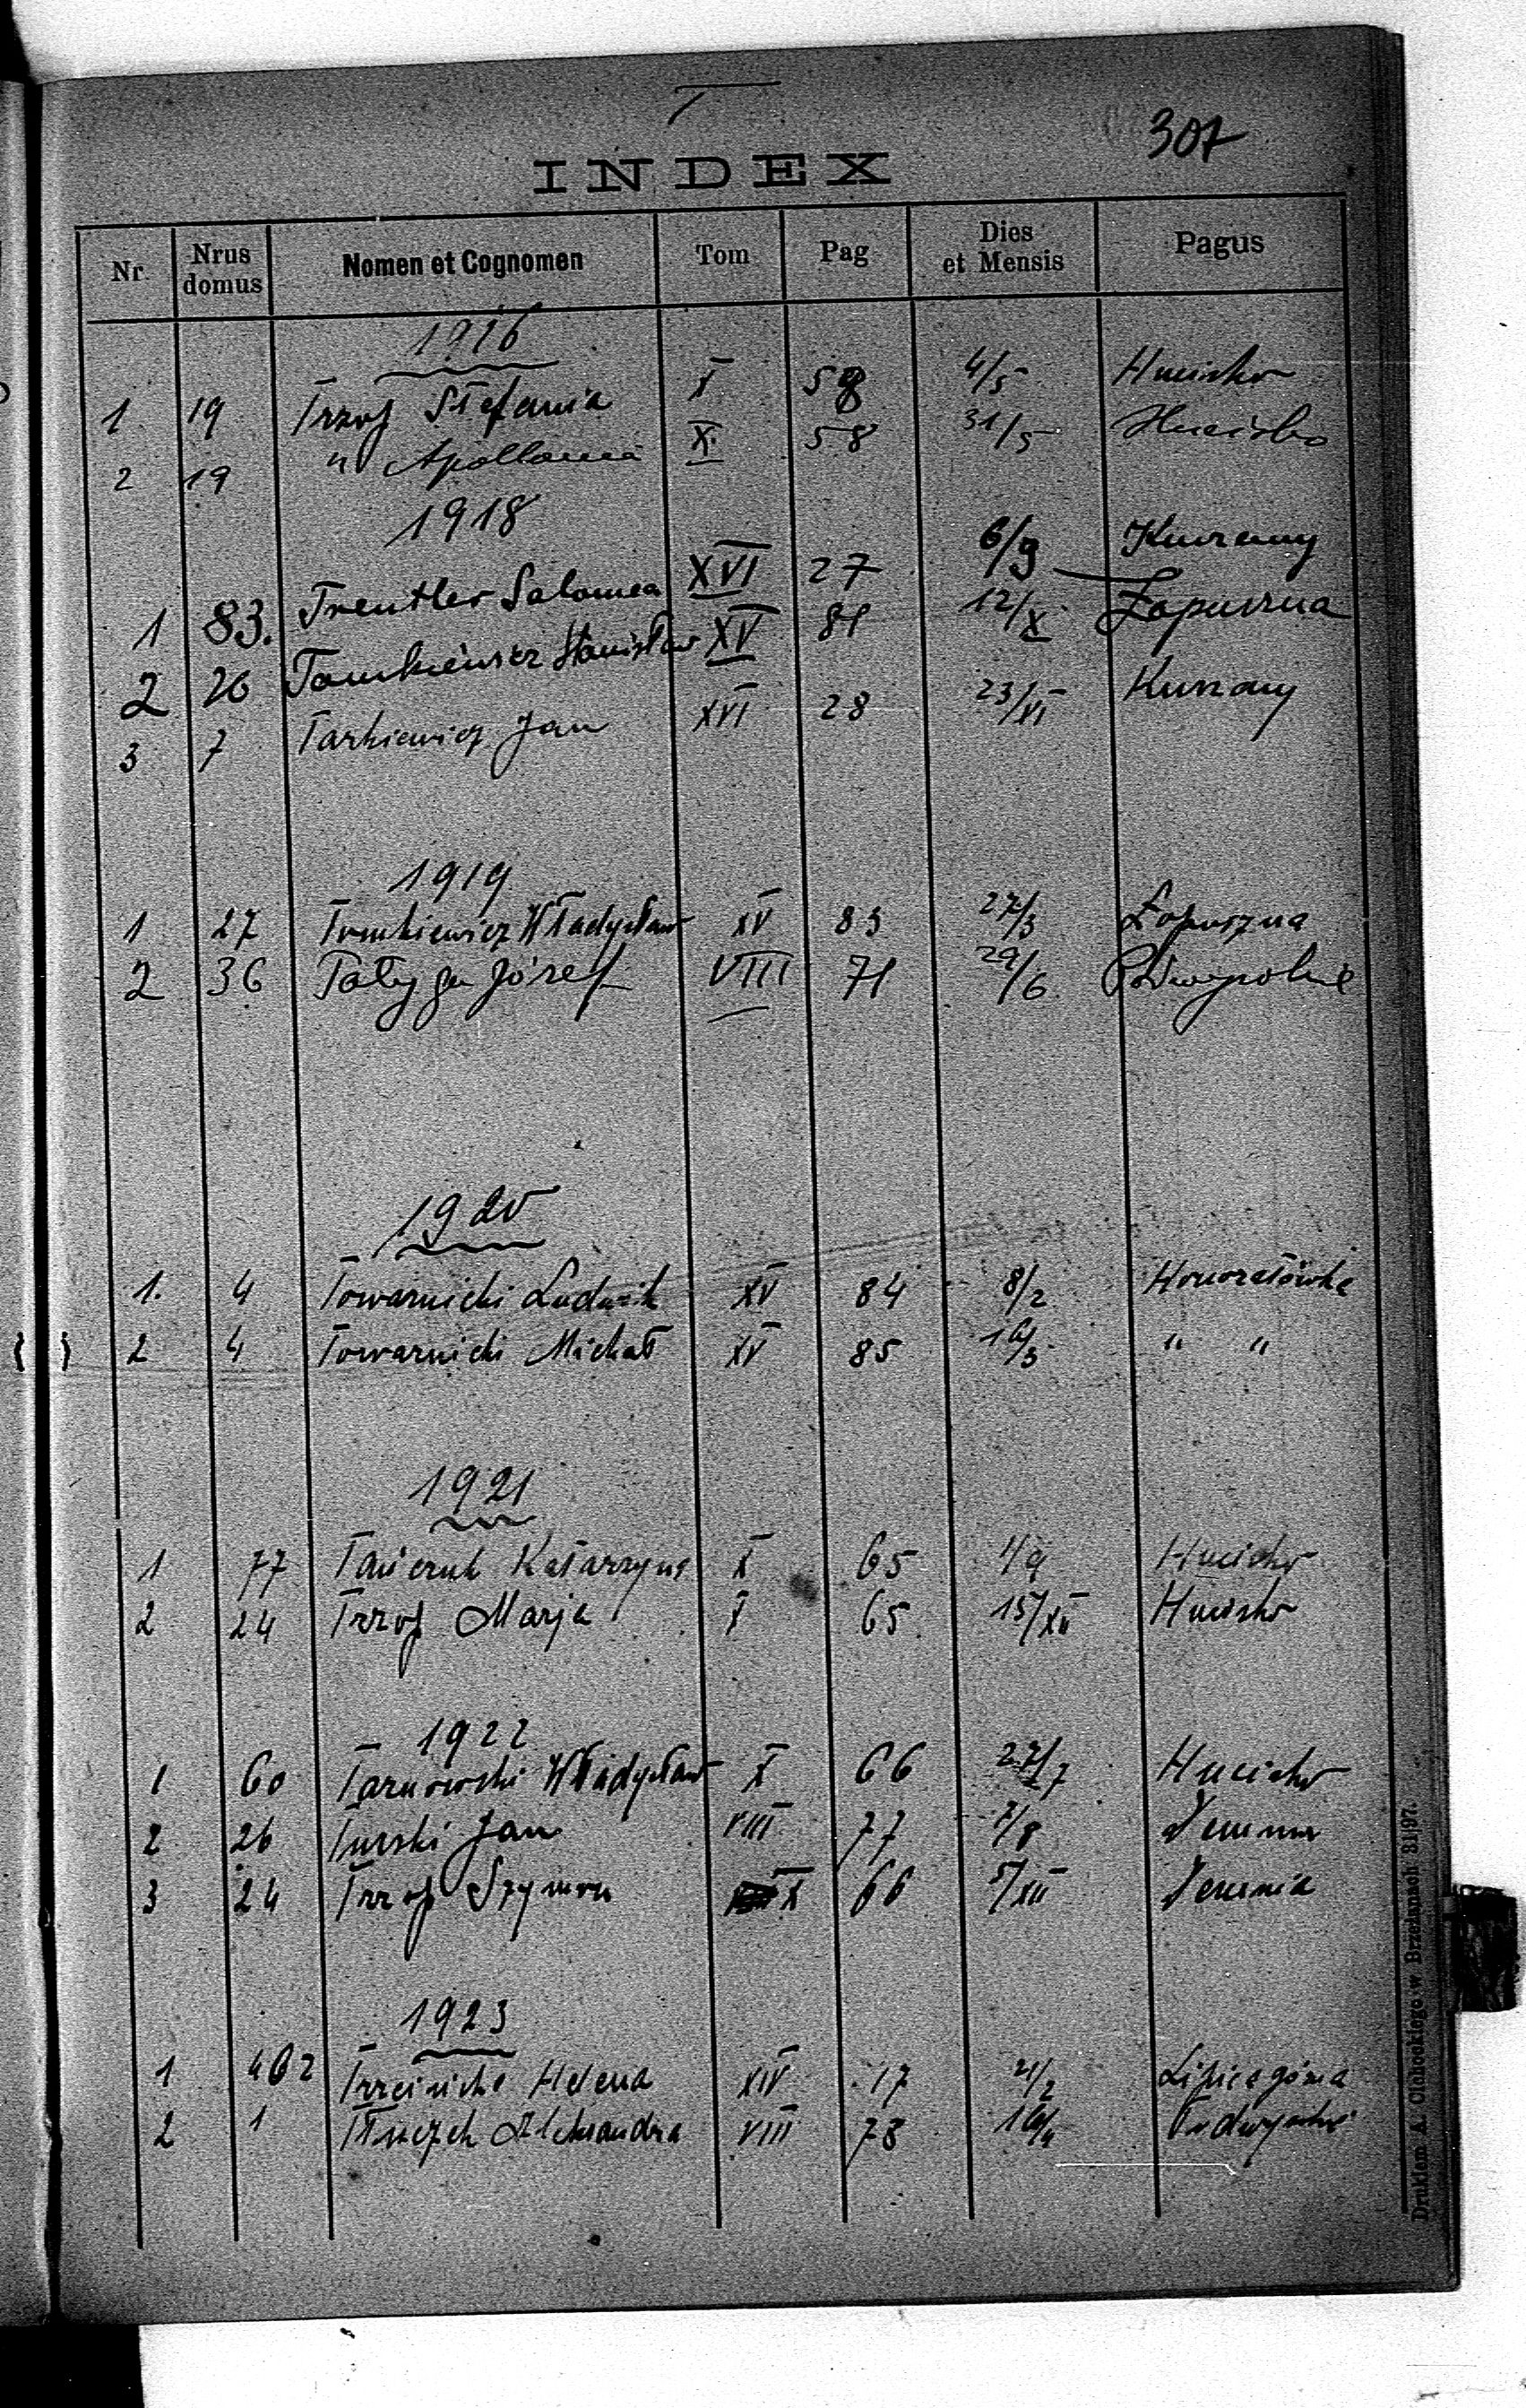 T
307
INDEX
Nr. Nrus domus Nomen et Cognomen Tom Pag Dies et Mensis Pagus
1916
1 19 Trzos Stefania X 58 4/5 Hucisko
2 19 " Apollonia X. 58 31/5 Hucisko
1918
1 83. Trentler Salomea XVI 27 6/9 Kurzany
2 26 Tomkiewicz Stanisław XV 81 12/X Łapuszna
3 7 Tarkiewicz Jan XVI 28 23/VI Kurzany
1919
1 27 Tomkiewicz Władysław XV 83 27/3 Łopuszna
2 36 Tatyga Józef VIII 71 29/6
1920
1. 4 Towarnicki Ludwik XV 84 8/2 Honoratówka
2 4 Towarnicki Michał XV 85 16/3 " "
1921
1 77 Katarzyna X 65 1/9 Hucisko
2 24 Trzos Marja X 65 15/XII Hucisko
1922
1 60 Tarnowski Władysław X 66 27/7 Hucisko
2 26 Turski Jan VIII 77 2/8
3 24 Trzos Szymon X 66 5/XII
1923
1 462 Helena XIV 17 21/2 Lipica górna
2 1 Tłuczek Aleksandra VIII 78 16/4
Drukiem A. Cichockiego w Brzeżanach 31|97.